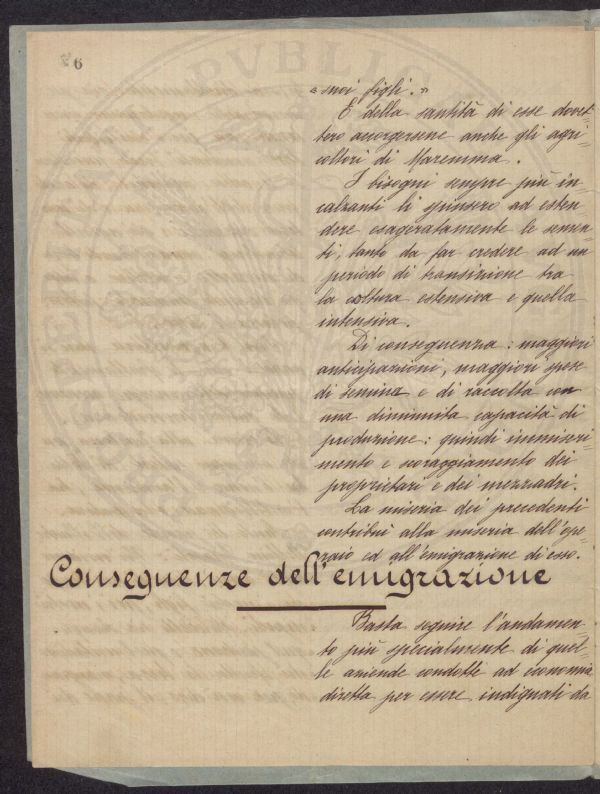 6
« suoi figli. »
E della santità di esse dovet=
tero accorgersene anche gli agri=
coltori di Maremma.
I bisogni sempre più in=
calzanti li spinsero ad esten=
dere esageratamente le semen=
ti, tanto da far credere ad un
periodo di transizione tra
la coltura estensiva e quella
intensiva.
Di conseguenza: maggiori
anticipazioni, maggiori spese
di semina e di raccolta con
una diminuita capacità di
produzione: quindi immiseri=
mento e scoraggiamento dei
proprietari e dei mezzadri.
La miseria dei precedenti
contribuì alla miseria dell'ope=
raio ed all'emigrazione di esso.
Conseguenze dell'emigrazione
Basta seguire l'andamen=
to più specialmente di quel=
le aziende condotte ad economia
diretta per essere indignati da